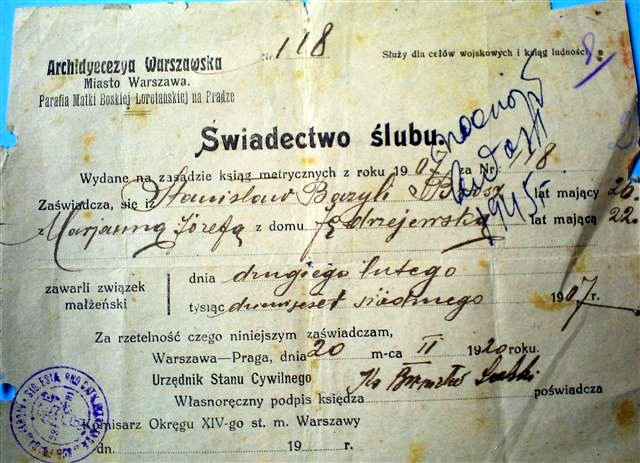 Nr 118
Służy dla celów wojskowych i ksiąg ludności.
Archidyecezya Warszawska
Miasto Warszawa.
Parafia Matki Boskiej Loretańskiej na Pradze
Świadectwo ślubu.
Wydane na zasadzie ksiąg metrycznych z roku 1907 za Nr: 118
Zaświadcza, się iż Stanisław Bazyli lat mający 26.
z Marjanną Józefą z domu Jędrzejewską lat mającą 22.
zawarli związek małżeński
dnia drugiego lutego
tysiąc dziewięćset siódmego 1907 r.
Za rzetelność czego niniejszym zaświadczam,
Warszawa—Praga, dnia 20 m-ca II 1920 roku.
Urzędnik Stanu Cywilnego
Własnoręczny podpis księdza poświadcza
Komisarz Okręgu XIV-go st. m. Warszawy
dn. 19 r.
1945